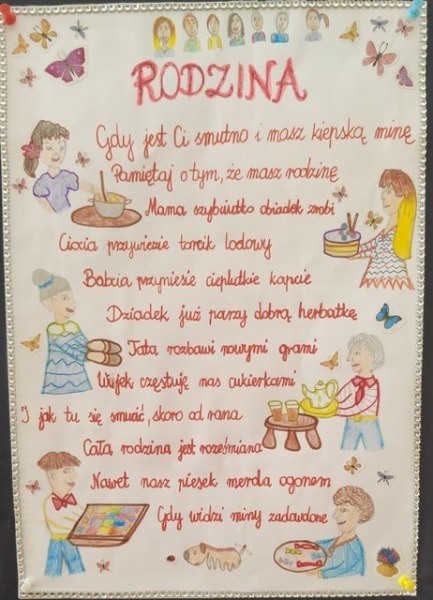 RODZINA
Gdy jest Ci smutno i masz kiepską minę
Pamiętaj o tym, że masz rodzinę
Mama szybciutko obiadek zrobi
Ciocia przywiezie torcik lodowy
Babcia przyniesie cieplutkie kapcie
Dziadek już parzy dobrą herbatkę
Tata rozbawi nowymi grami
Wujek częstuje nas cukierkami
I jak tu się smucić, skoro od rana
Cała rodzina jest roześmiana
Nawet nasz piesek merda ogonem
Gdy widzi miny zadowolone